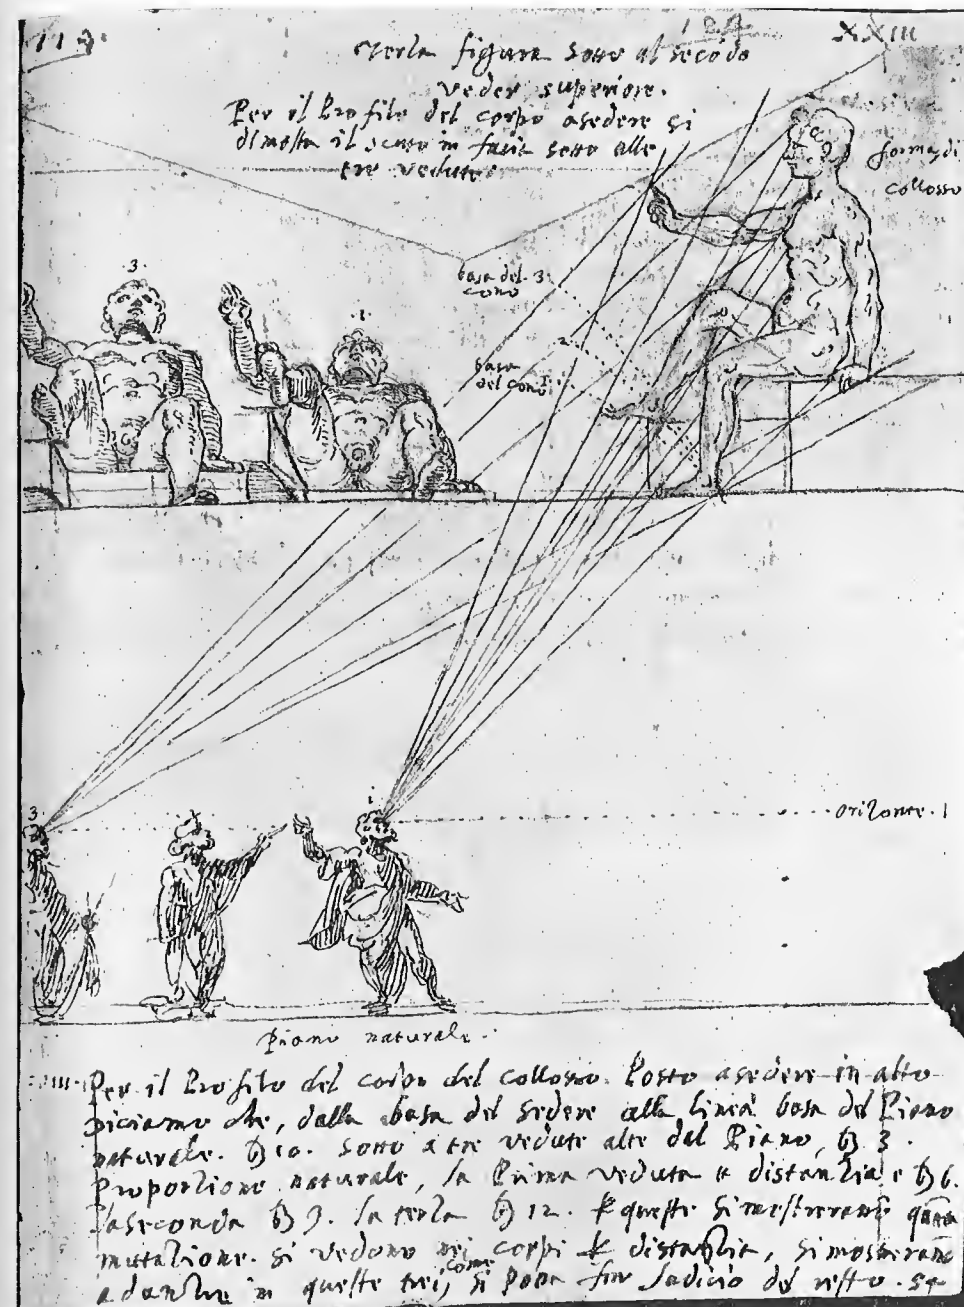 119.
124
XXIII
Terla figura sotto al secōdo
veder superiore.
Per il Profilo del corpo asedere si
dimostra il scurto in facia sotto alle
tre vedute
forma di
collosso
3.
1.
basa del 3.
cono
2
basa
del cono 1.
3.
1.
orizonte. 1
Piano naturale.
Per il Profilo del corpo del collosso. Posto asedere in alto
Diciamo che, dalla basa del sedere alla linea basa del Piano
naturale. 10. sotto a tre vedute alte dal Piano, 3.
Proportione naturale, la Prima veduta distantia e 6.
la seconda 9. la terza 12. queste si mostrerano
mutatione. si vedono nei corpi distantia, si mosterano
adantre in queste trei, come si Pora far Judicio del resto.